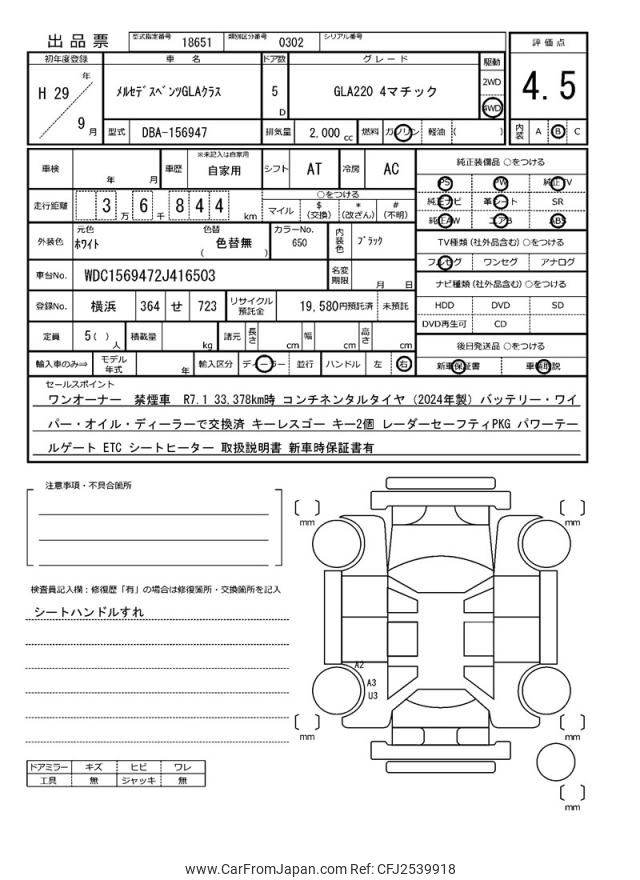 出品票 型式指定番号 18651 類別区分番号 0302 シリアル番号
初年度登録 車 名 ドア数 グレード 駆動 評価点
H 29 年 9 月 ﾒﾙｾﾃﾞｽﾍﾞﾝﾂGLAｸﾗｽ 5 D GLA220 4マチック 2WD 4WD 4.5
型式 DBA-156947 排気量 2,000 cc 燃料 ガソリン 軽油 ( ) 内装 A B C
車検 年 月 車歴 ※未記入は自家用 自家用 シフト AT 冷房 AC 純正装備品 ○をつける
PS PW 純正TV
走行距離 3 万 6 千 8 4 4 km ○をつける マイル $ (交換) * (改ざん) # (不明) 純正ナビ 革シート SR
純正AW エアB ABS
外装色 元色 ﾎﾜｲﾄ 色替 色替無 ( ) カラーNo. 650 内装色 ﾌﾞﾗｯｸ TV種類 (社外品含む) ○をつける
フルセグ ワンセグ アナログ
車台No. WDC1569472J416503 名変期限 月 日 ナビ種類 (社外品含む) ○をつける
登録No. 横浜 364 せ 723 リサイクル預託金 19,580円預託済 未預託 HDD DVD SD
DVD再生可 CD
定員 5( ) 人 積載量 kg 諸元 長さ cm 幅 cm 高さ cm 後日発送品 ○をつける
輸入車のみ⇒ モデル年式 年 輸入区分 ディーラー 並行 ハンドル 左 右 新車保証書 車輌取説
セールスポイント
ワンオーナー 禁煙車 R7.1 33,378km時 コンチネンタルタイヤ (2024年製) バッテリー・ワイ
パー・オイル・ディーラーで交換済 キーレスゴー キー2個 レーダーセーフティPKG パワーテー
ルゲート ETC シートヒーター 取扱説明書 新車時保証書有
注意事項・不具合箇所
mm mm
検査員記入欄：修復歴「有」の場合は修復箇所・交換箇所を記入
シートハンドルすれ
A2
A3
U3
mm mm
ドアミラー キズ ヒビ ワレ
工具 無 ジャッキ 無
mm
www.CarFromJapan.com Ref: CFJ2539918